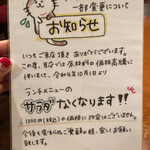 一部変更について
お知らせ
いつもご来店頂きありがとうございます。
この度、当店では原材料の価格高騰に
伴いまして、令和4年10月1日より
ランチメニューの
サラダなくなります!!
1000円(税込)の価格に改定はございません。
今後も変わらぬご愛顧の程、宜しくお願い
致します。